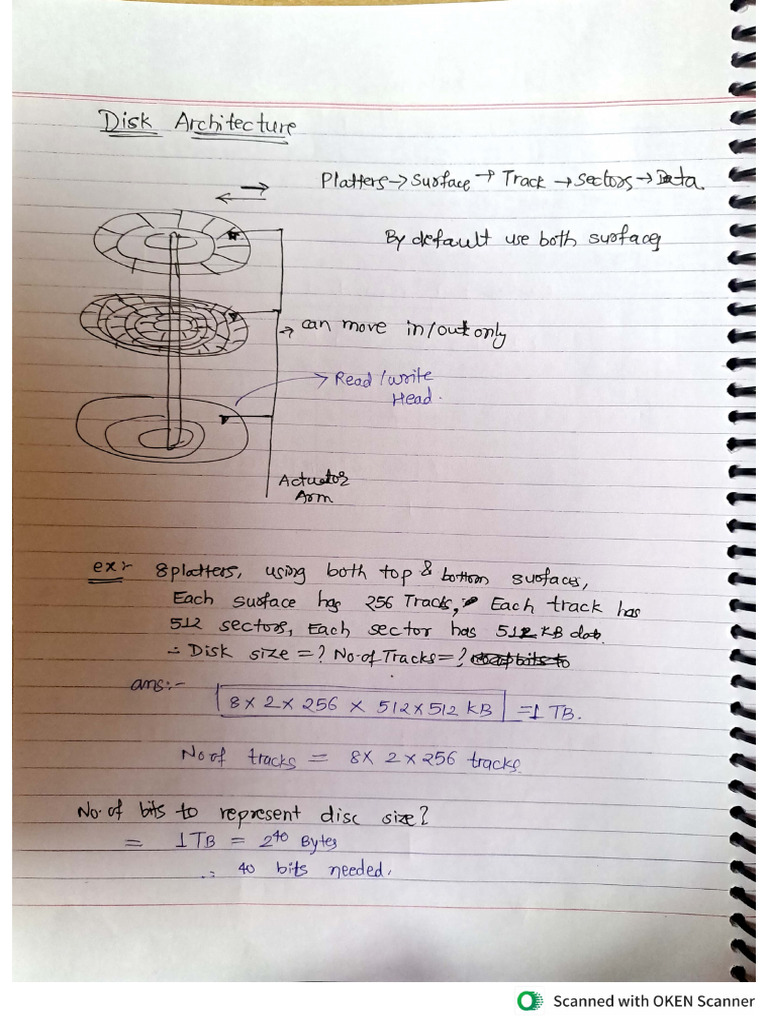 Disk Architecture
Platters → Surface → Track → Sectors → Data
By default use both surfaces
→ can move in/out only
→ Read/write
Head.
Actuator
Arm
ex:- 8 platters, using both top & bottom surfaces,
Each surface has 256 Tracks, Each track has
512 sectors, Each sector has 512 KB data.
∴ Disk size = ? No. of Tracks = ?
ans:-
8 × 2 × 256 × 512 × 512 KB = 1 TB.
No of tracks = 8 × 2 × 256 tracks.
No. of bits to represent disc size?
= 1 TB = 2⁴⁰ Bytes
∴ 40 bits needed.
Scanned with OKEN Scanner